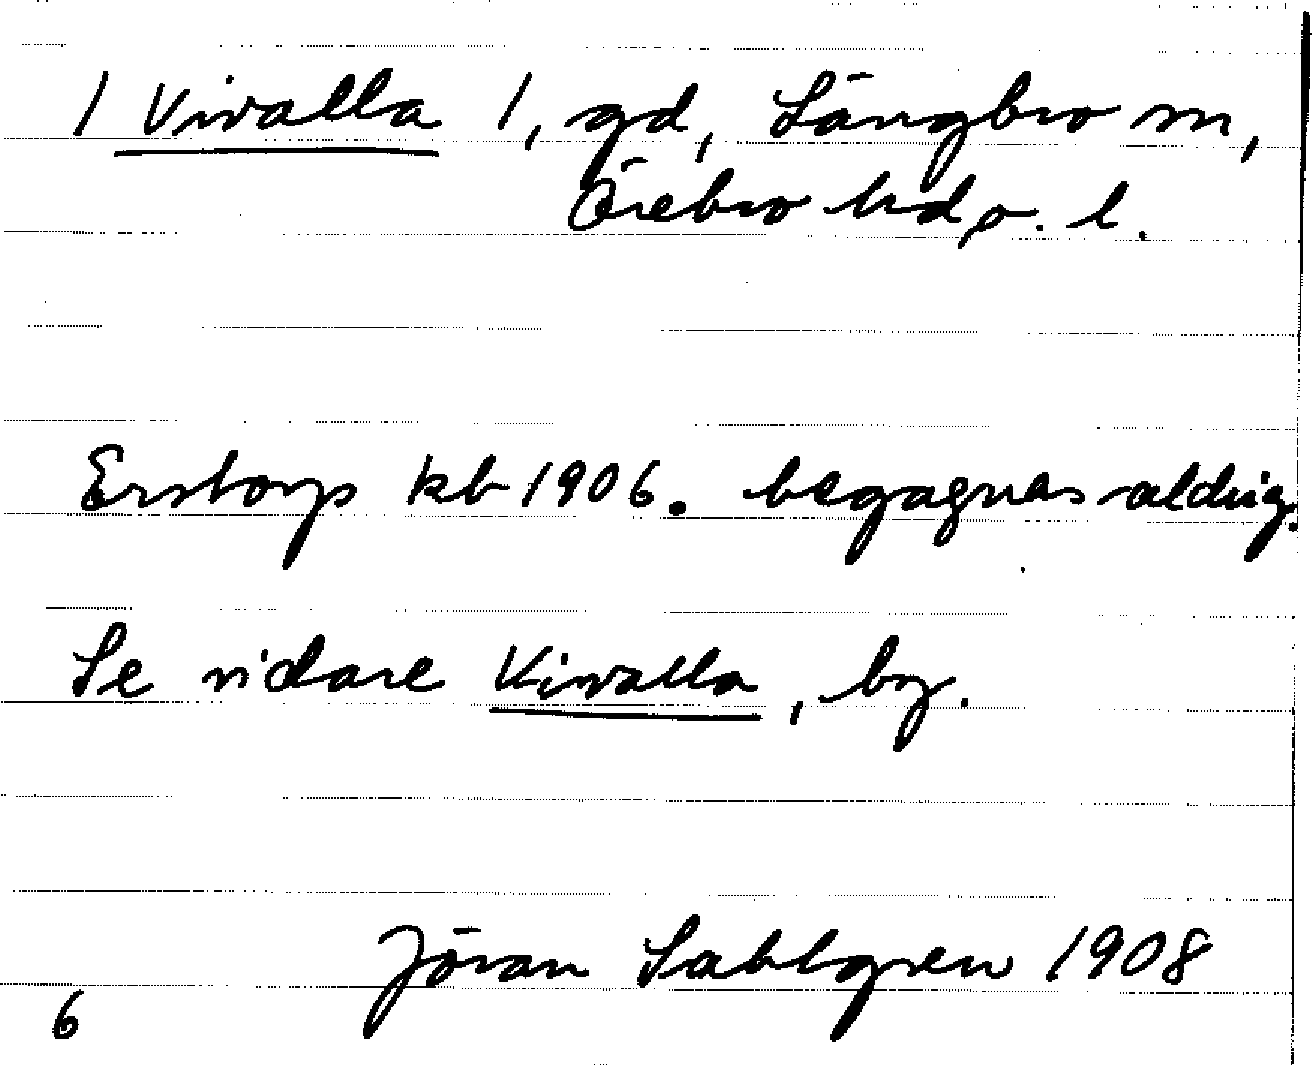 1 Vivalla 1, gd, Längbro sn,
Örebro hd, ö. l.
Erstorp kb 1906. begagnas aldrig.
Se vidare Vivalla, by.
Jöran Sahlgren 1908
6